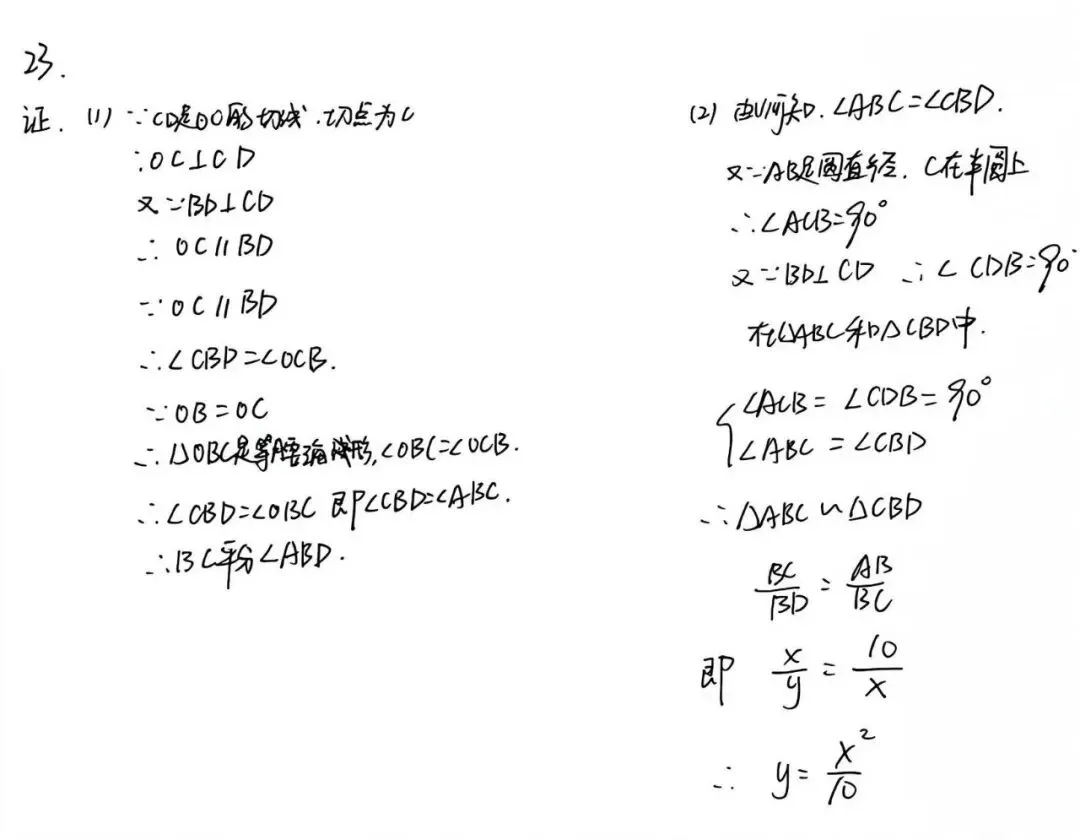 23.
证. (1) ∵CD是⊙O的切线.切点为C
∴OC⊥CD
又∵BD⊥CD
∴ OC∥BD
∵OC∥BD
∴∠CBD=∠OCB.
∵OB=OC
∴△OBC是等腰三角形,∠OBC=∠OCB.
∴∠CBD=∠OBC 即∠CBD=∠ABC.
∴BC平分∠ABD.
(2) 由(1)可知.∠ABC=∠CBD.
又∵AB是圆直径. C在半圆上
∴∠ACB=90°
又∵BD⊥CD ∴∠CDB=90°
在△ABC和△CBD中.
{∠ACB=∠CDB=90°
∠ABC=∠CBD
∴△ABC∽△CBD
BC/BD=AB/BC
即 x/y=10/x
∴ y=x²/10